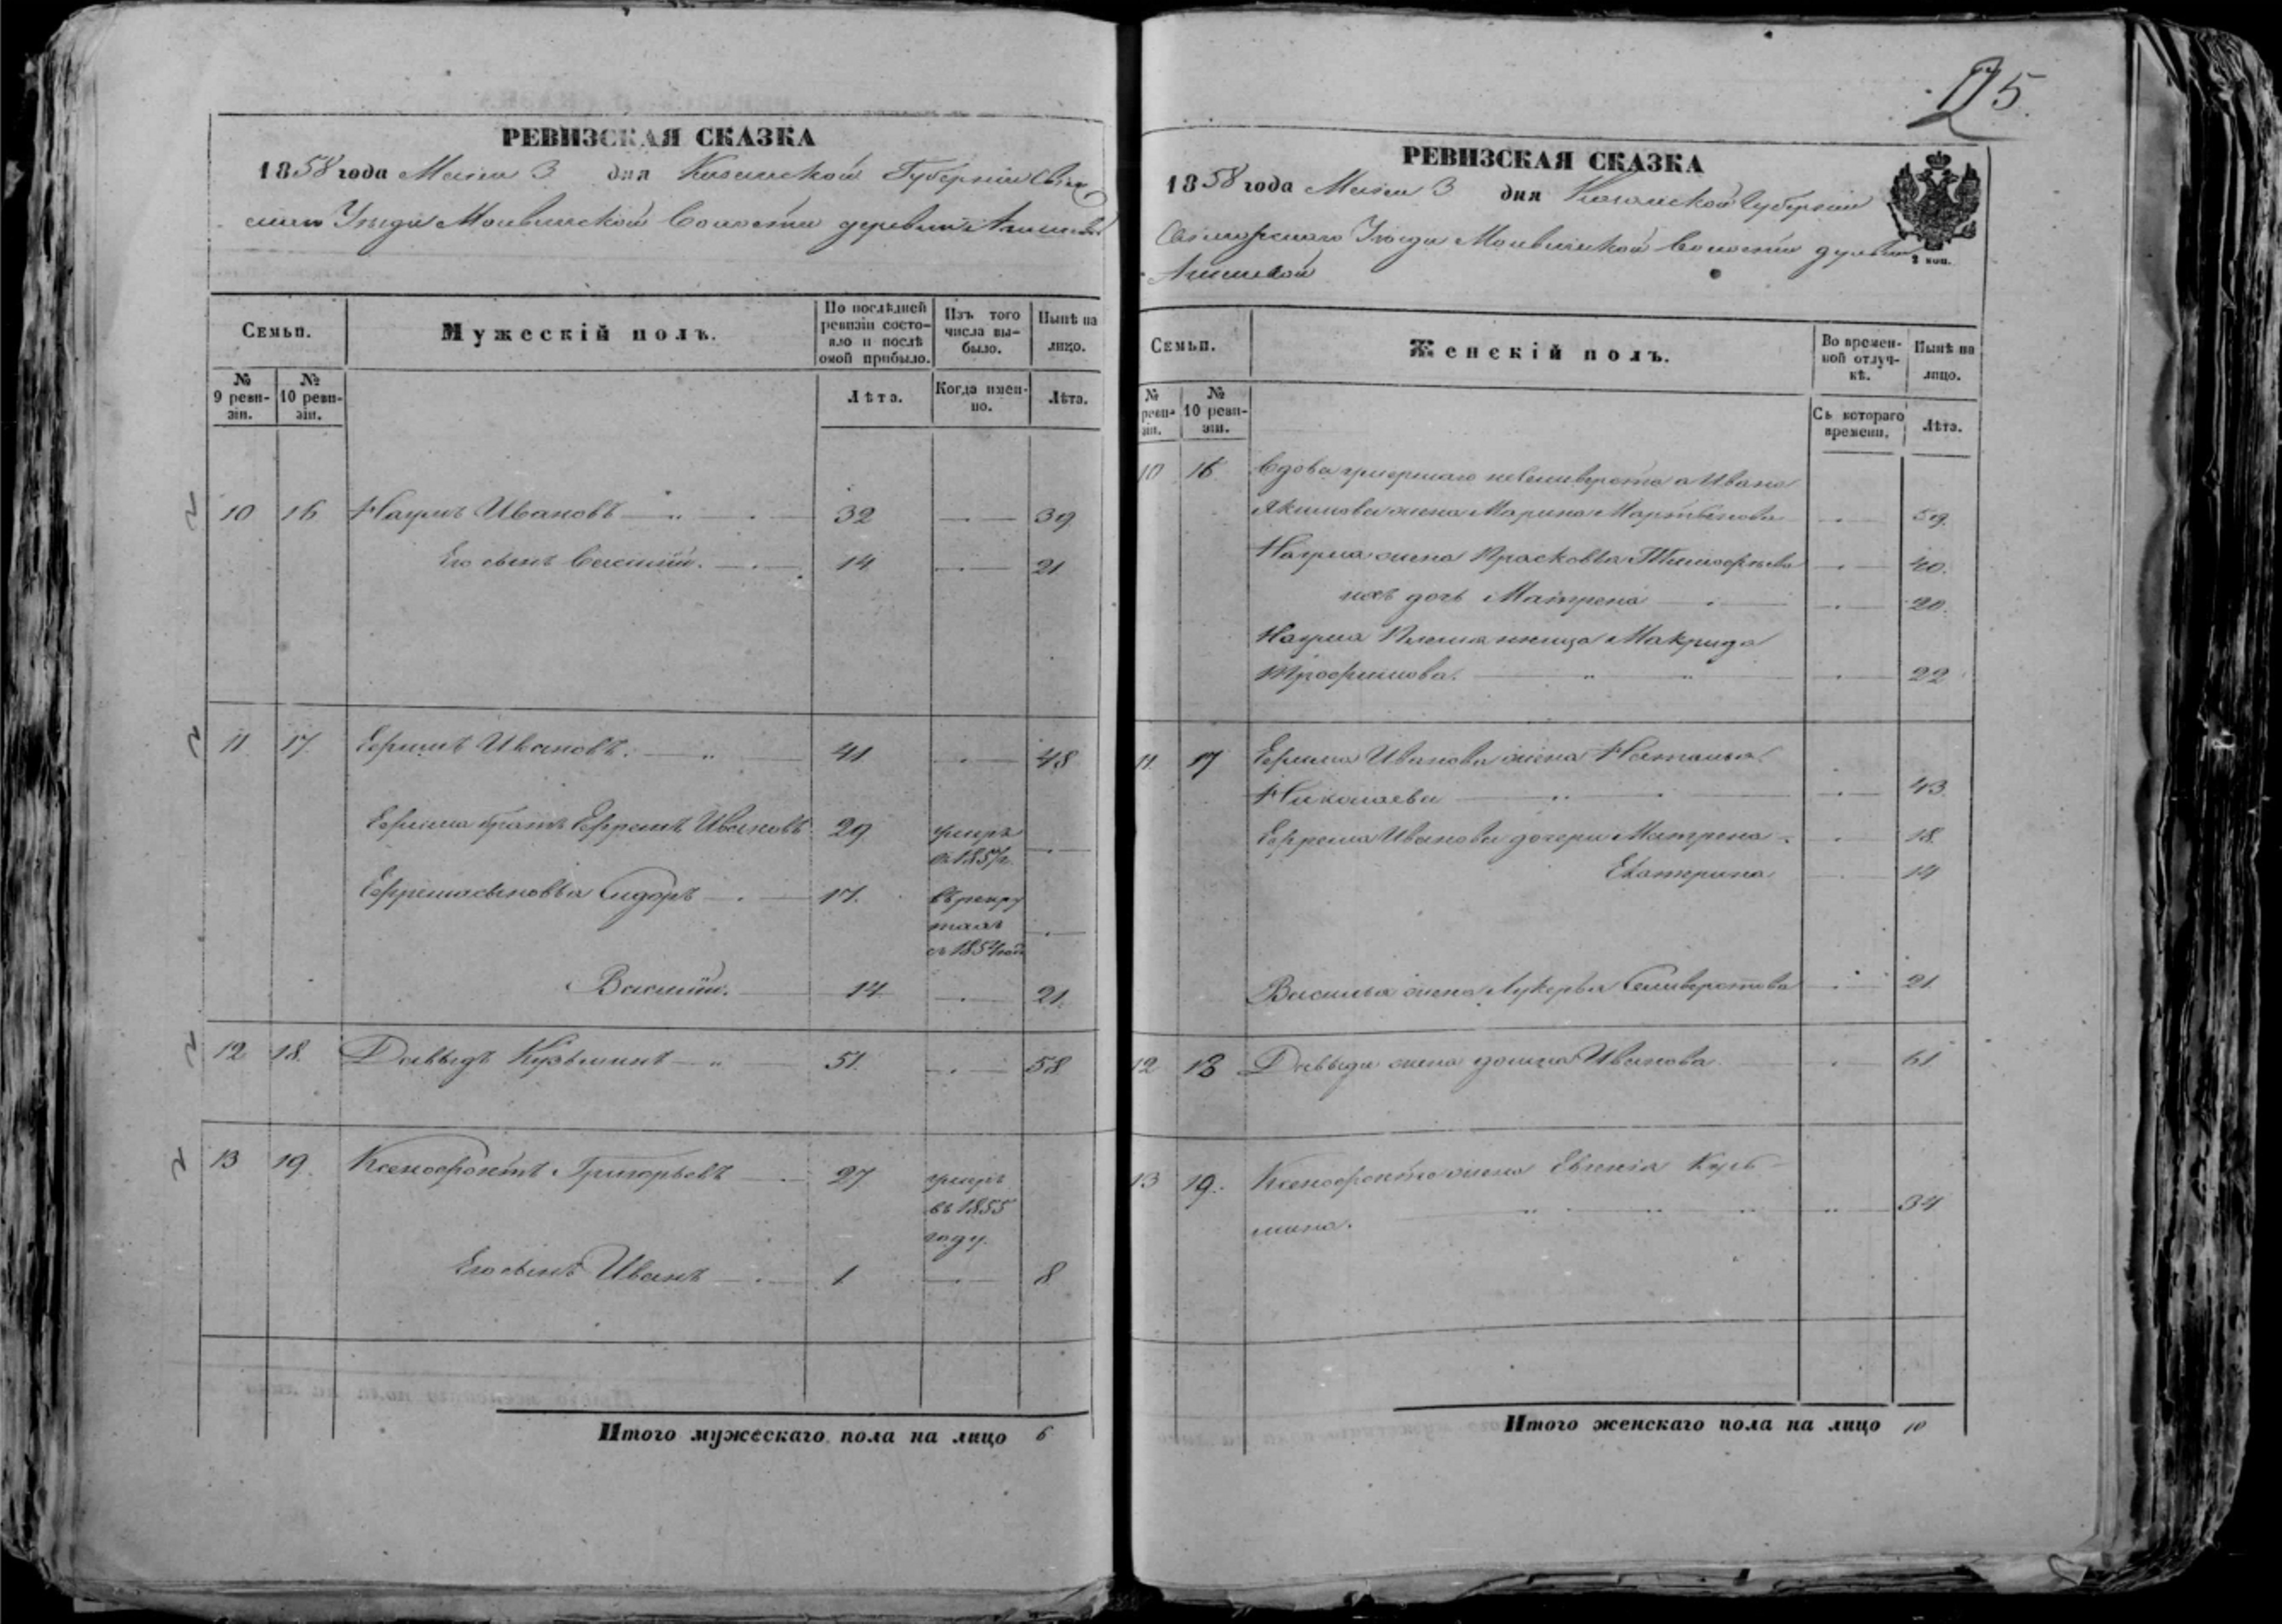 25.
РЕВИЗСКАЯ СКАЗКА
1858 года Маія 3 дня Казанской Губерніи
Уѣзда Волости деревни
Семьи.
Мужескій полъ.
По послѣдней ревизіи состояло и послѣ оной прибыло.
Изъ того числа выбыло.
Нынѣ на лицо.
№ 9 ревизіи.
№ 10 ревизіи.
Лѣта.
Когда именно.
Лѣта.
10 16 Наумъ Ивановъ 32 39
Его сынъ Василій. 14 21
11 17. Ефимъ Ивановъ. 41 48
Ефима братъ Ефремъ Ивановъ 29 умеръ
въ 1857 г.
Ефрема сыновья Сидоръ 17. въ рекру
тахъ
съ 1854 года
Василій. 14 21.
12 18. Давыдъ Кузьминъ 51. 58
13 19. Ксенофонтъ Григорьевъ 27 умеръ
въ 1855
году.
Его сынъ Иванъ 1. 8
Итого мужескаго пола на лицо 6
РЕВИЗСКАЯ СКАЗКА
1858 года Маія 3 дня Казанской Губерніи
Свіяжскаго Уѣзда Волости деревни
2 коп.
Семьи.
Женскій полъ.
Во временной отлучкѣ.
Нынѣ на лицо.
№ ревизіи.
№ 10 ревизіи.
Съ котораго времени.
Лѣта.
10 16 Вдова умершаго Ивана
Якимова жена Марина Мартынова 59.
Наума жена Прасковья Тимофеева 40.
ихъ дочь Матрена 20.
Наума Племянница Макрида
Трофимова. 22
11. 17 Ефима Иванова жена Наталья
Николаева 43
Ефрема Иванова дочери Матрена 18.
Екатерина 14
Василья жена Лукерья Селиверстова 21.
12 18 Давыда жена Иванова 61
13 19. Ксенофонта жена Евгенія Кузь
мина. 34
Итого женскаго пола на лицо 10